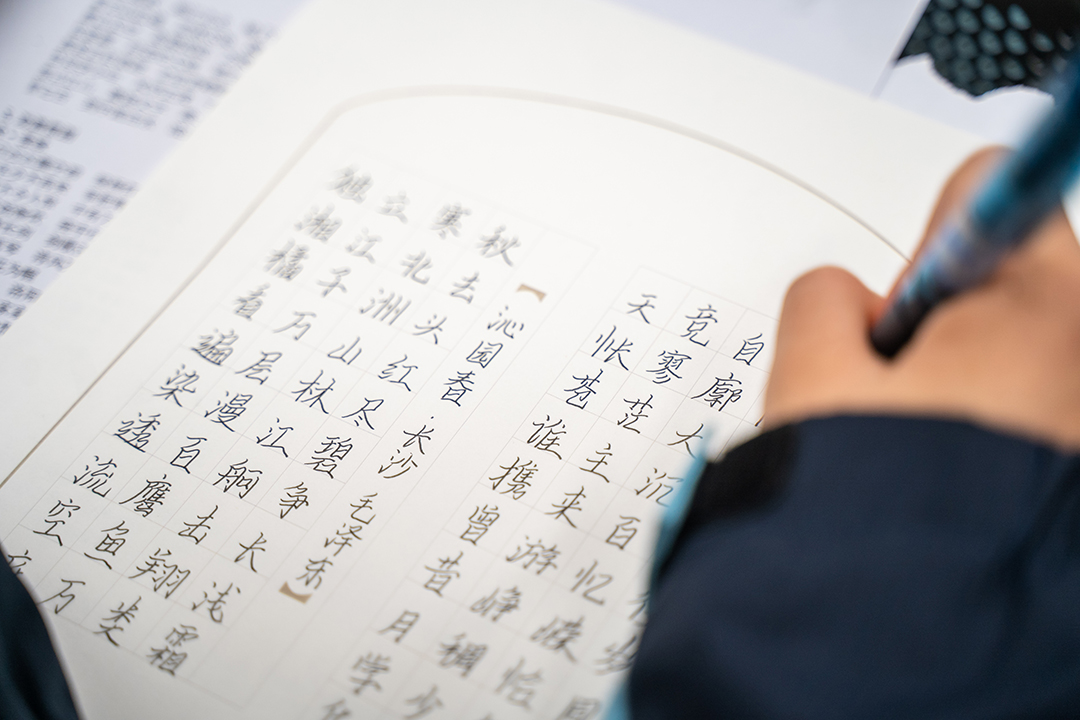 独立寒秋
湘江北去
橘子洲头
看万山红
遍层林尽
染漫江碧
透百舸争
流鹰击长
空鱼翔浅
底万类霜
【沁园春·长沙 毛泽东】
天竞自
怅寥廓
苍茫大
谁主沉
携来百
曾游忆
昔峥嵘岁
月稠恰同
学少